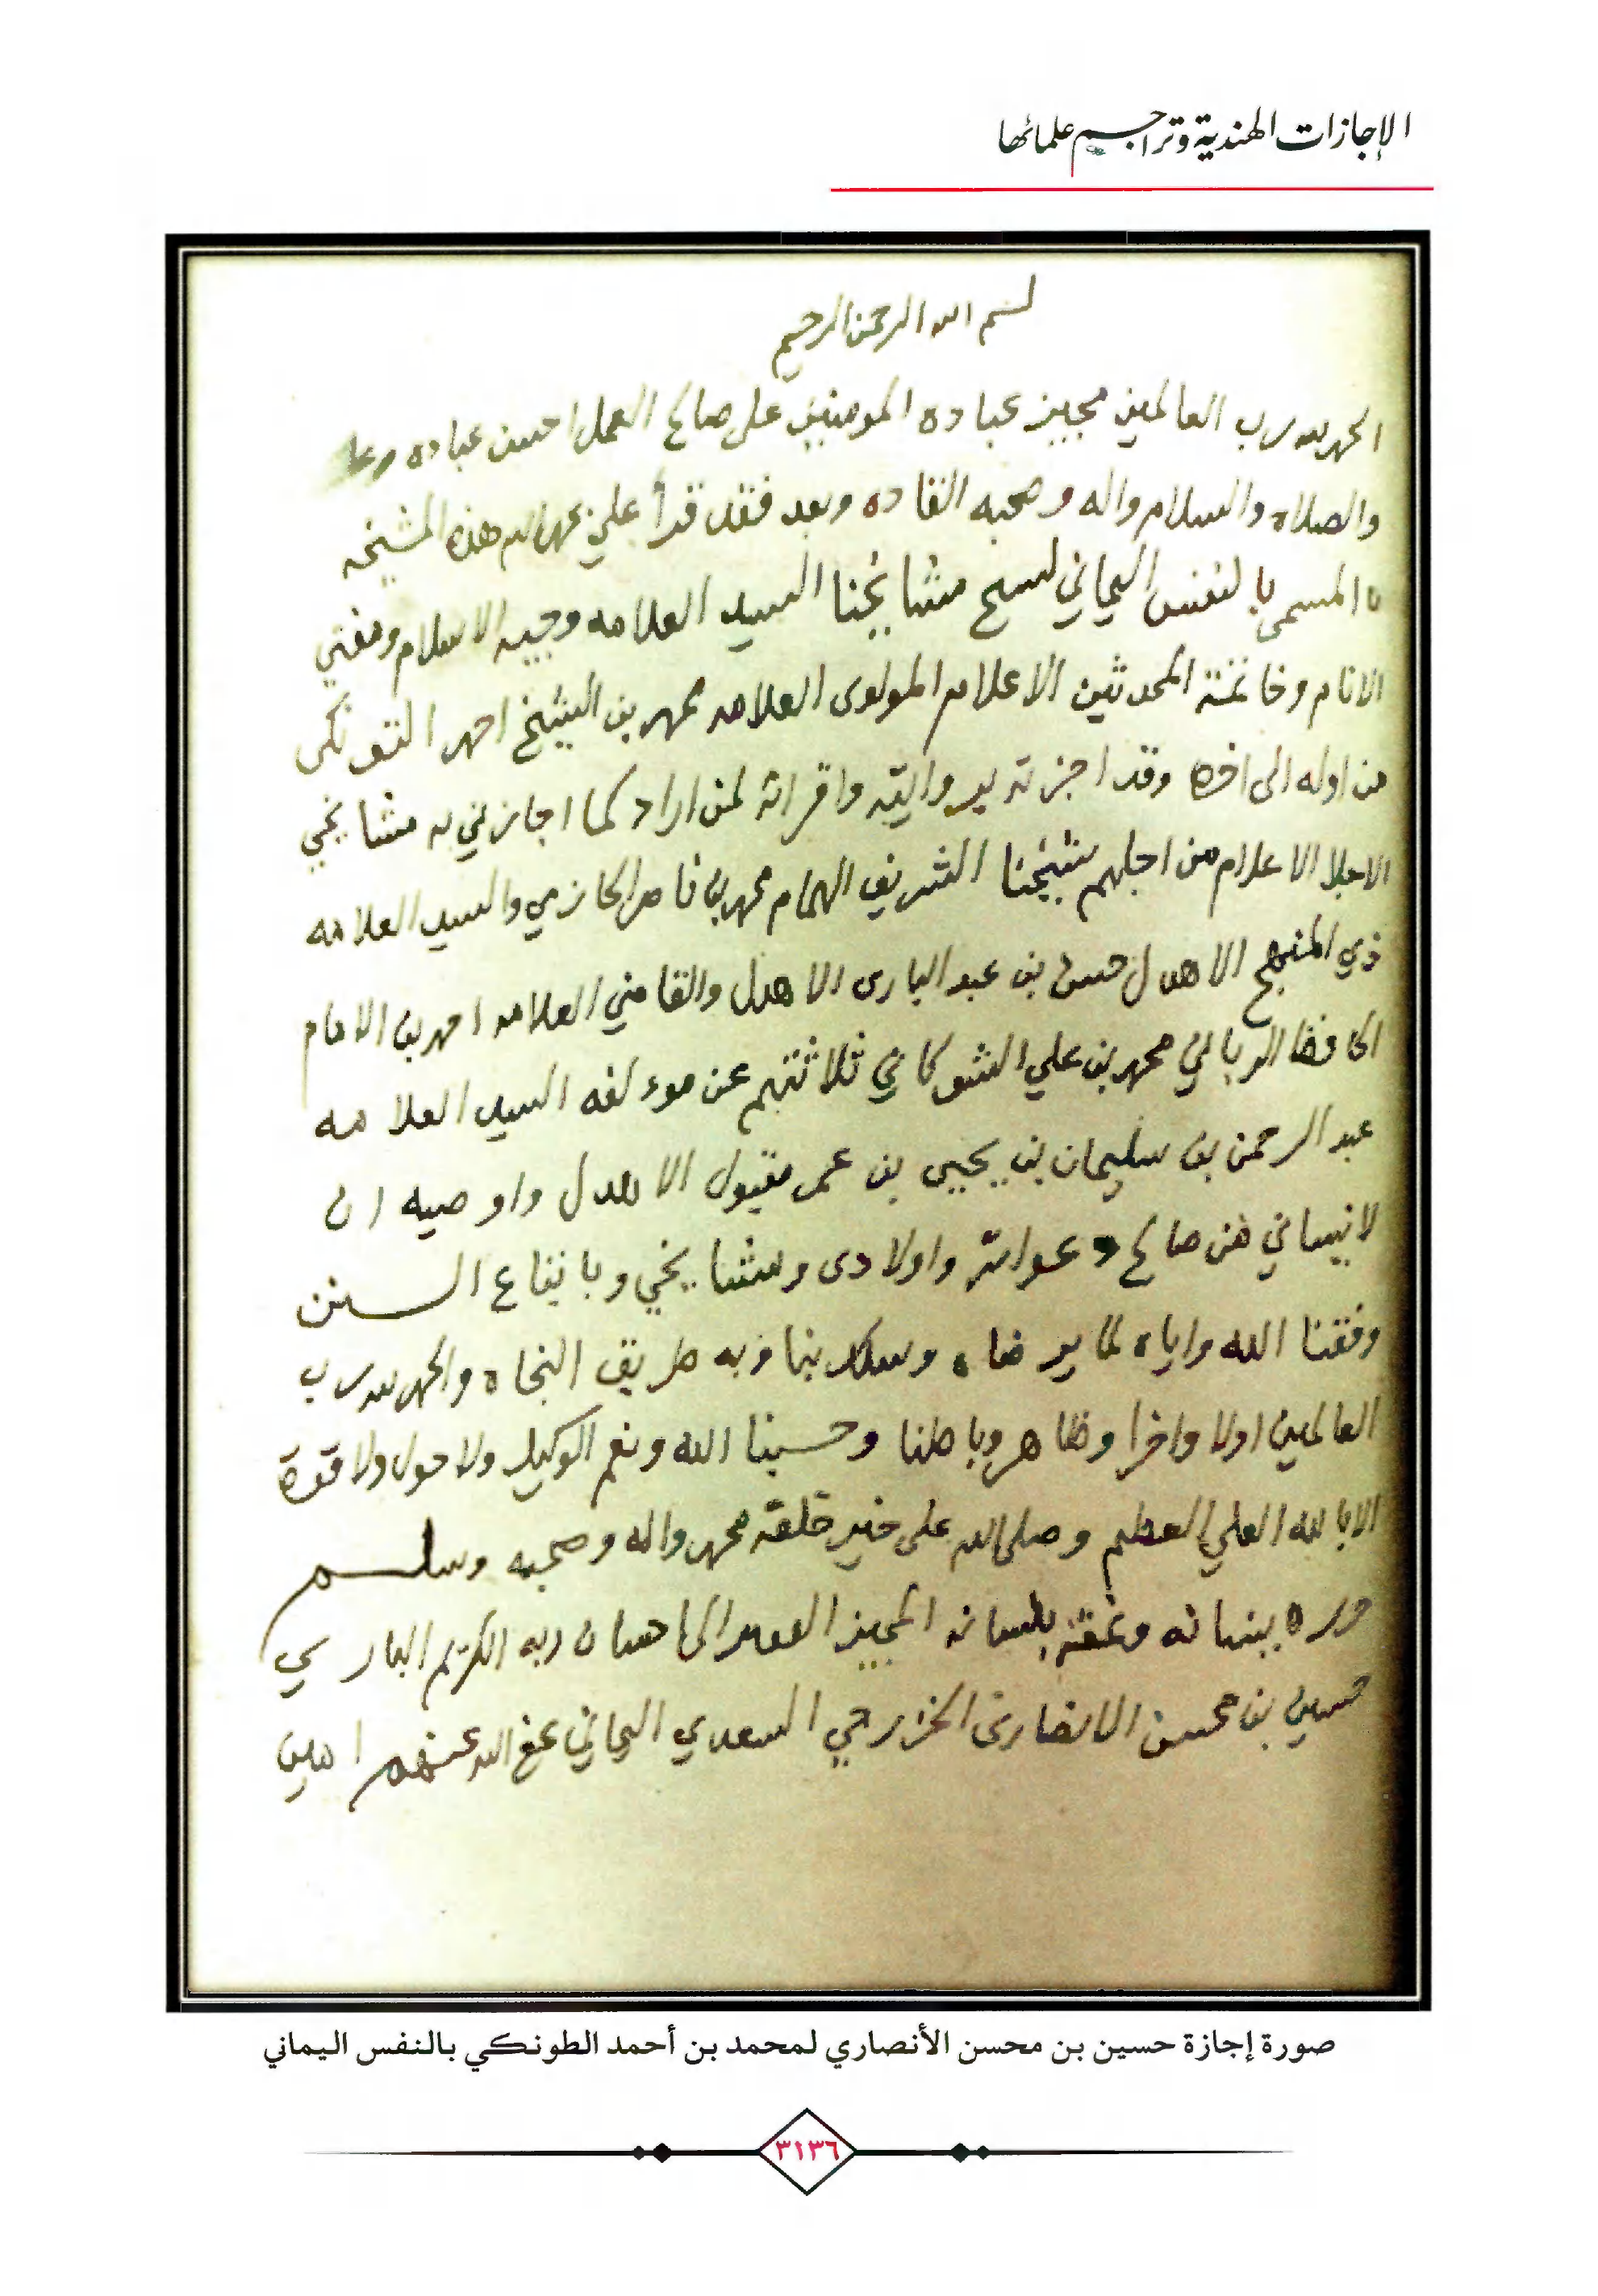 الإجازات الهندية وتراجيم علمائها
لسم الله الرحمن الرحيم
الحمد لله رب العالمين مجيز عباده المومنين على صالح العمل احسن عباده
والصلاه والسلام واله وصحبه القاده وبعد فقد قرأ علي بحمد الله هذه المشيخه
المسمى بالنفس اليماني لشيخ مشايخنا السيد العلامه وجيه الاسلام ومفتي
الانام وخاتمة المحدثين الاعلام المولوى العلامه محمد بن الشيخ احمد التونكى
من اوله الى اخره وقد اجزته بروايته واقرائه لمن اراد كما اجازني به مشايخي
الاجلا الاعلام من اجلهم شيخنا الشريف الهمام محمد بن ناصر الحازمي والسيد العلامه
ذي المنهج الاهدل حسن بن عبد البارى الاهدل والقاضي العلامه احمد بن الامام
الحافظ الرباني محمد بن علي الشوكاني ثلاثتهم عن موءلفه السيد العلامه
عبد الرحمن بن سليمان بن يحيى بن عمر مقبول الاهدل واوصيه ان
لا نيساني من صالح دعواته واولادى ومشايخي وباتباع السنن
وفقنا الله واياه لما يرضاه وسلك بنا وبه طريق النجاه والحمد لله رب
العالمين اولا واخرا وظاهر وباطنا وحسبنا الله ونعم الوكيل ولا حول ولا قوة
الا بالله العلي العظيم وصلى الله على خير خلقه محمد واله وصحبه وسلم
حرره ببنانه ونمقه بلسانه المجيز الفقير الى احسان ربه الكريم الباري
حسين بن محسن الانصارى الخزرجي السعدي اليماني عفى الله عنهم امين
صورة إجازة حسين بن محسن الأنصاري لمحمد بن أحمد الطونكي بالنفس اليماني
٣١٣٦